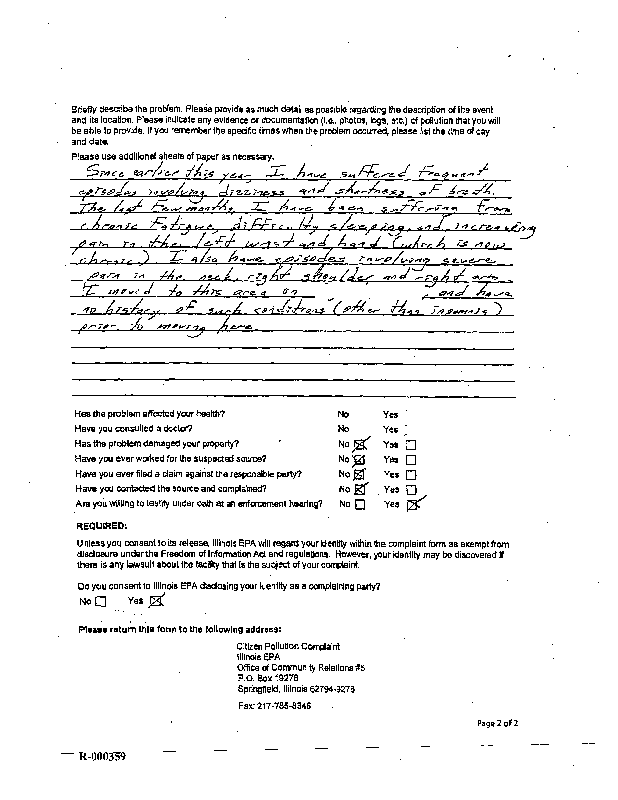 Briefly describe the problem. Please provide as much detail as possible regarding the description of the event
and its location. Please indicate any evidence or documentation (i.e., photos, logs, etc.) of pollution that you will
be able to provide. If you remember the specific times when the problem occurred, please list the time of day
and date.
Please use additional sheets of paper as necessary.
Since earlier this year, I have suffered frequent
episodes involving dizziness and shortness of breath.
The last few months, I have been suffering from
chronic fatigue, difficulty sleeping, and increasing
pain in the left wrist and hand (which is now
chronic). I also have episodes involving severe
pain in the neck, right shoulder, and right arm.
I moved to this area on , and have
no history of such conditions (other than insomnia)
prior to moving here.
Has the problem affected your health? No Yes
Have you consulted a doctor? No Yes
Has the problem damaged your property? No ☒ Yes ☐
Have you ever worked for the suspected source? No ☒ Yes ☐
Have you ever filed a claim against the responsible party? No ☒ Yes ☐
Have you contacted the source and complained? No ☒ Yes ☐
Are you willing to testify under oath at an enforcement hearing? No ☐ Yes ☒
REQUIRED:
Unless you consent to its release, Illinois EPA will regard your identity within the complaint form as exempt from
disclosure under the Freedom of Information Act and regulations. However, your identity may be discovered if
there is any lawsuit about the facility that is the subject of your complaint.
Do you consent to Illinois EPA disclosing your identity as a complaining party?
No ☐ Yes ☒
Please return this form to the following address:
Citizen Pollution Complaint
Illinois EPA
Office of Community Relations #5
P.O. Box 19276
Springfield, Illinois 62794-9276
Fax: 217-785-8346
Page 2 of 2
R-000359